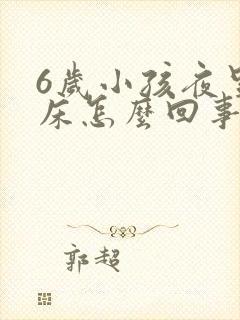 6歲小孩夜
床怎麼回事
郭超